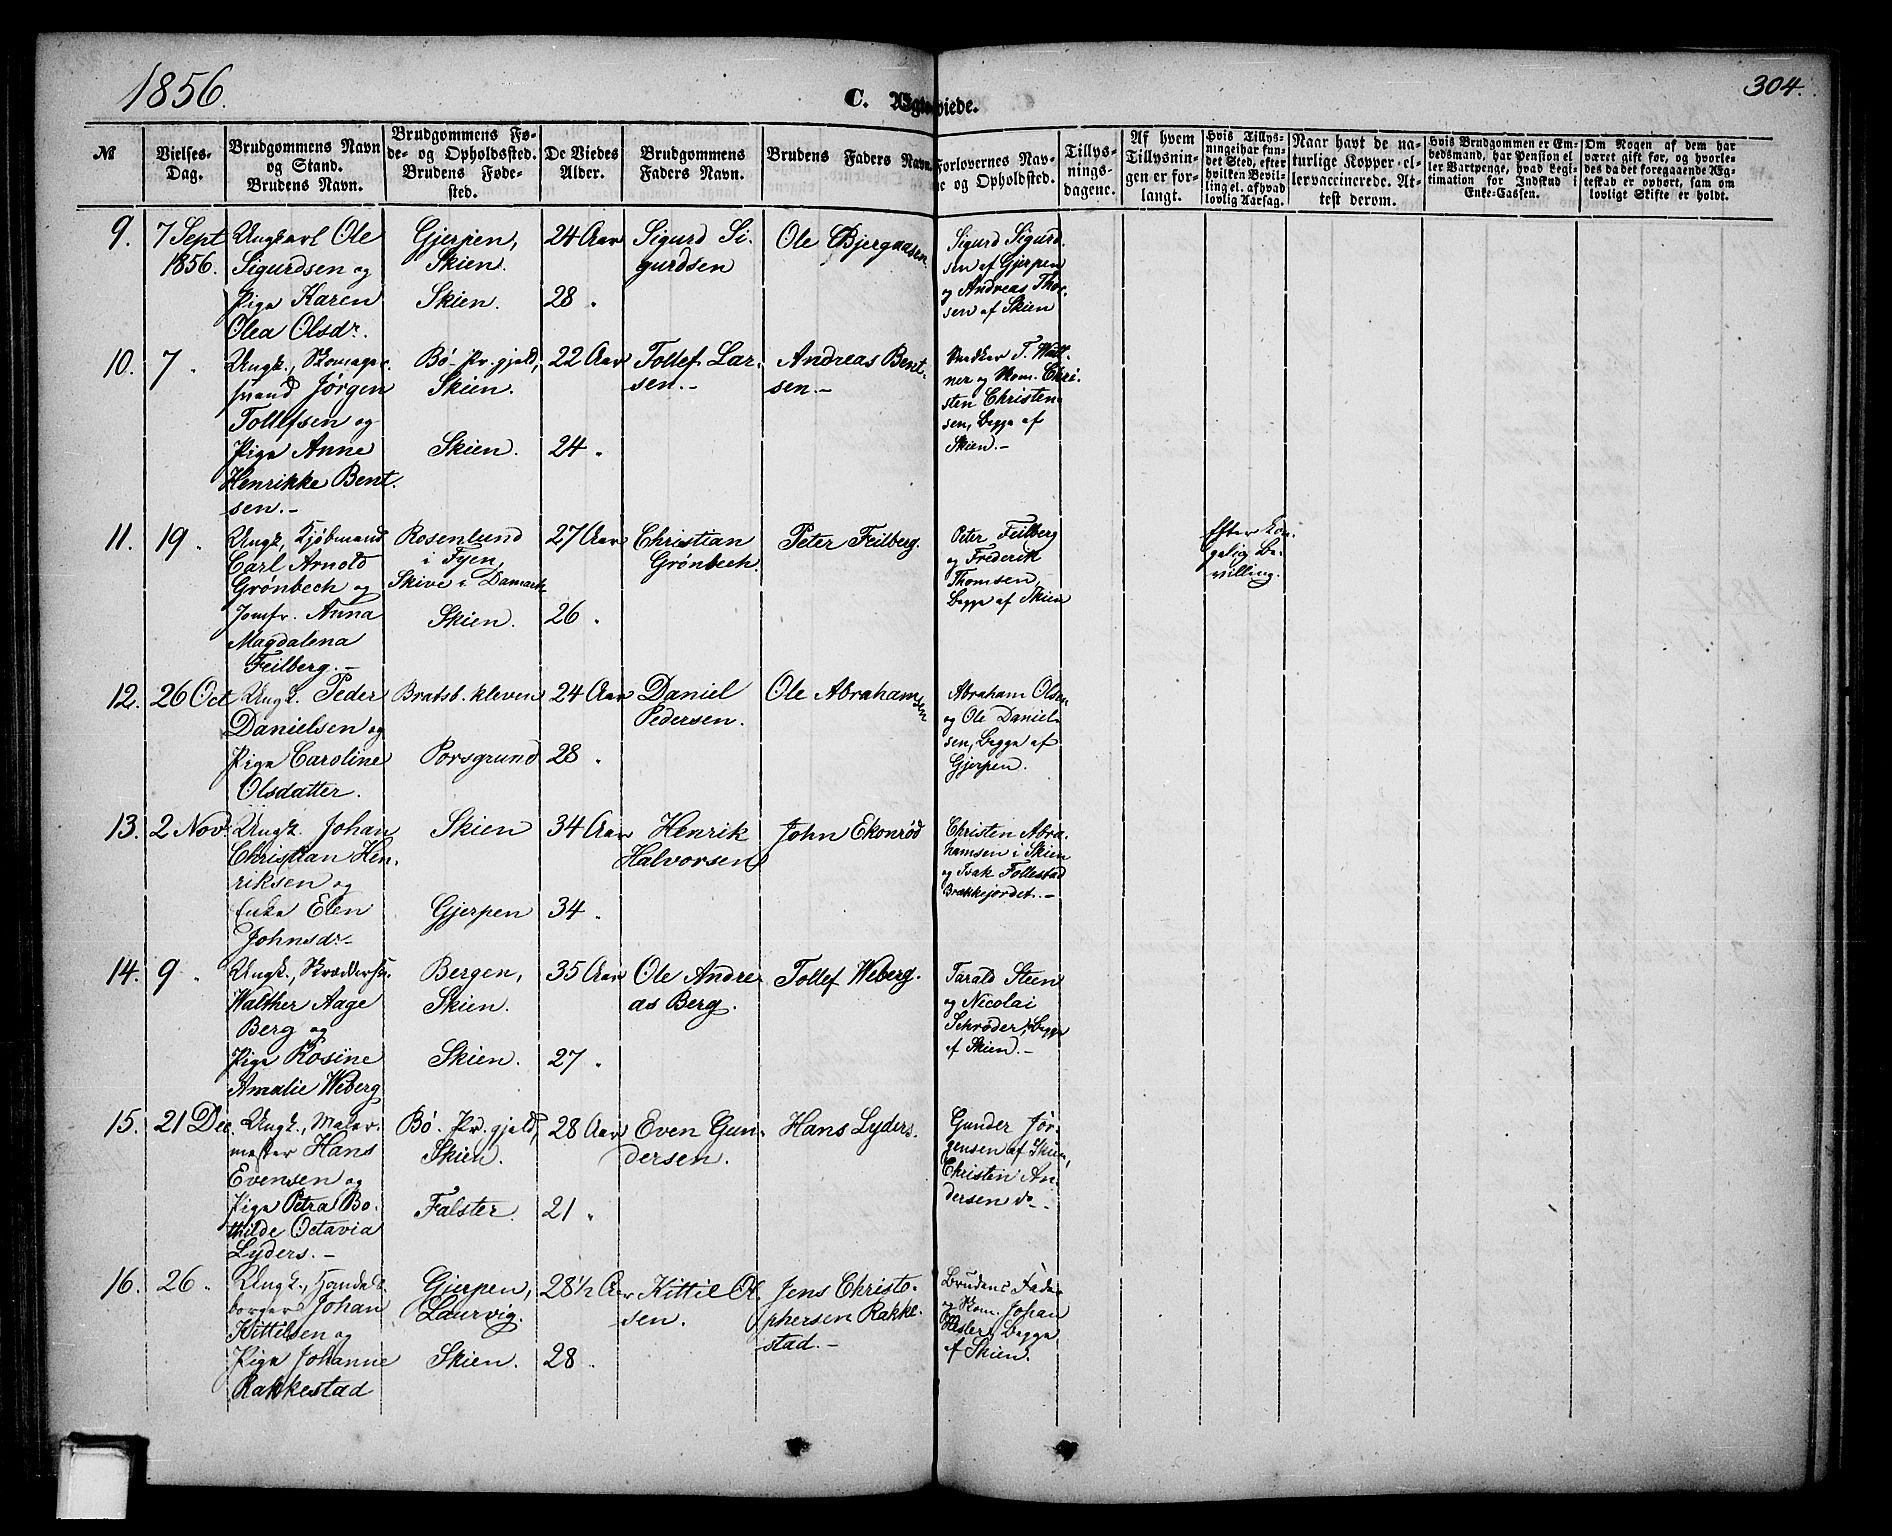 1856.
C. Ægteviede.
304.
№
Vielses-
Dag.
Brudgommens Navn
og Stand.
Brudens Navn.
Brudgommens Fø-
de- og Opholdssted.
Brudens Føde-
sted.
De Viedes
Alder.
Brudgommens
Faders Navn.
Brudens Faders Navn.
Forlovernes Nav-
ne og Opholdssted.
Tillys-
nings-
dagene.
Af hvem
Tillysnin-
gen er for-
langt.
Hvis Tillys-
ningei har fun-
det Sted, efter
hvilken Bevil-
ling el. af hvad
lovlig Aarsag.
Naar havt de na-
turlige Kopper el-
ler vaccinerede. At-
test derom.
Hvis Brudgommen er Em-
bedsmand, har Pension el
ler Vartpenge, hvad Legi-
timation for Indskud i
Enke-Cassen.
Om Nogen af dem har
været gift før, og hvorle-
des da det foregaaende Æg-
teskab er ophørt, sam om
lovligt Skifte er holdt.
9.
7 Sept
1856.
Ungkarl Ole
Sigurdsen og
Pige Karen
Olea Olsdr.
Gjerpen,
Skien.
Skien.
24 Aar
28 "
Sigurd Si-
gurdsen
Ole Bjergaasen
Sigurd Sigurd-
sen af Gjerpen
og Andreas Thor-
sen af Skien
10.
7 "
Ungk., Skomager-
svend Jørgen
Tollefsen og
Pige Anne
Henrikke Bent-
sen.-
Bø Pr.gjeld,
Skien.
Skien.
22 Aar
24 "
Tollef Lar-
sen.-
Andreas Bent-
sen.-
Snedker T. Watt-
ner og Skom. Chri-
sten Christen-
sen, begge af
Skien.-
11.
19 "
Ungk. Kjøbmand
Carl Arnold
Grønbech og
Jomfr. Anna
Magdalena
Feilberg.-
Rosenlund
i Fyen,
Skive i Danmark
Skien.
27 Aar
26 "
Christian
Grønbech.
Peter Feilberg.
Peter Feilberg
og Frederik
Thomsen,
begge af Skien
Efter kon-
gelig Be-
villing.
12.
26 Oct
Ungk. Peder
Danielsen og
Pige Caroline
Olsdatter.
Bratsb.kleven
Porsgrund
24 Aar
28 "
Daniel
Pedersen.
Ole Abrahamsen
Abraham Olsen
og Ole Daniel-
sen, begge af
Gjerpen.
13.
2 Nov.
Ungk. Johan
Christian Hen-
riksen og
Enke Elen
Johnsdr-
Skien
Gjerpen
34 Aar
34 "
Henrik
Halvorsen
John Ekonrød
Christen Abra-
hamsen i Skien
og Isak Follestad
Brækkejordet.-
14.
9 "
Ungk., Skræddersv.
Walther Aage
Berg og
Pige Rosine
Amalie Weberg
Bergen,
Skien.
Skien.
35 Aar
27 "
Ole Andre-
as Berg.
Tollef Weberg.
Tarald Steen
og Nicolai
Schrøder, begge
af Skien.-
15.
21 Dec.
Ungk., Maler-
mester Hans
Evensen og
Pige Petra Bo-
thilde Octavia
Lyders.-
Bø Pr.gjeld,
Skien.
Falster.
28 Aar
21 "
Even Gun-
dersen.
Hans Lyders.
Gunder Jør-
gensen af Skien,
Christen An-
dersen do-
16.
26 "
Ungk., Handels-
borger Johan
Kittilsen og
Pige Johanne
Rakkestad
Gjerpen,
Laurvig.
Skien.
28 1/2 Aar
28 "
Kittil Ol-
sen.
Jens Christo-
phersen Rakke-
stad.-
Brudens Fader
og Skom. Johan
Hesler, begge
af Skien.